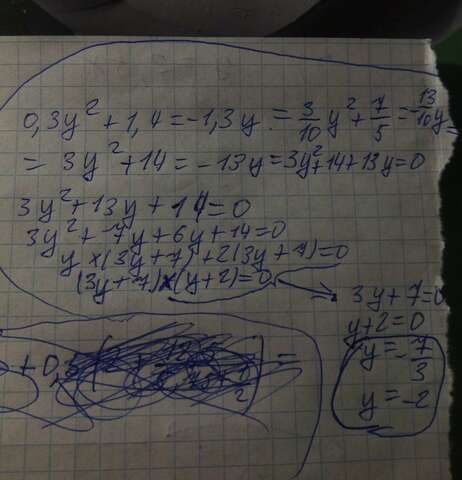 0,3y² + 1,4 = -1,3y = 3/10 y² + 7/5 = -13/10 y =
= 3y² + 14 = -13y = 3y² + 14 + 13y = 0
3y² + 13y + 14 = 0
3y² + 7y + 6y + 14 = 0
y × (3y + 7) + 2(3y + 7) = 0
(3y + 7) × (y + 2) = 0
3y + 7 = 0
y + 2 = 0
y = -7/3
y = -2
+ 0,5
=